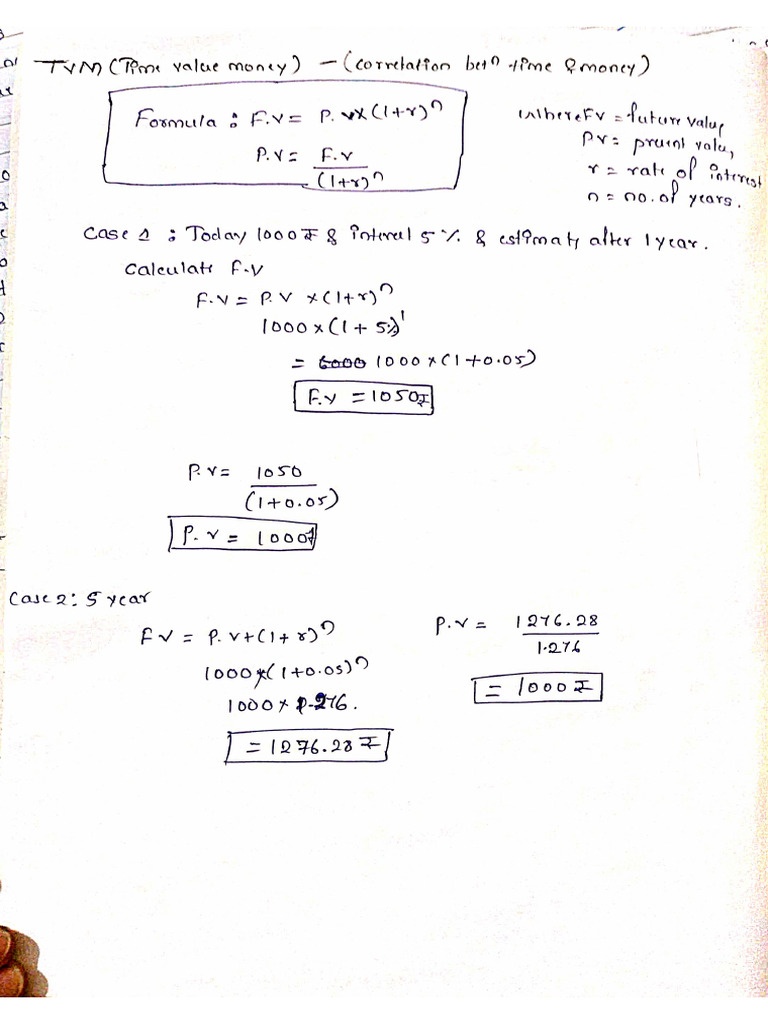 TVM (Time value money) - (correlation betⁿ time & money)
Formula : F.V = P.V x (1+r)ⁿ
P.V = F.V
(1+r)ⁿ
Where FV = future value,
PV = present valu,
r = rate of interest
n = no. of years.
Case 1 : Today 1000 ₹ & interest 5 % & estimate after 1 year.
Calculate F.V
F.V = P.V x (1+r)ⁿ
1000 x (1 + 5%)¹
= 1000 x (1+0.05)
F.V = 1050₹
P.V = 1050
(1+0.05)
P.V = 1000₹
Case 2: 5 year
F V = P.V + (1+r)ⁿ
1000 x (1+0.05)ⁿ
1000 x 1.276.
= 1276.28 ₹
P.V = 1276.28
1.276
= 1000 ₹